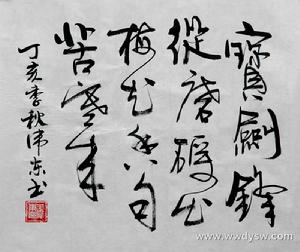 寶劍鋒
從磨礪出
梅花香自
苦寒来
丁亥季秋伟东书
www.wdysw.com